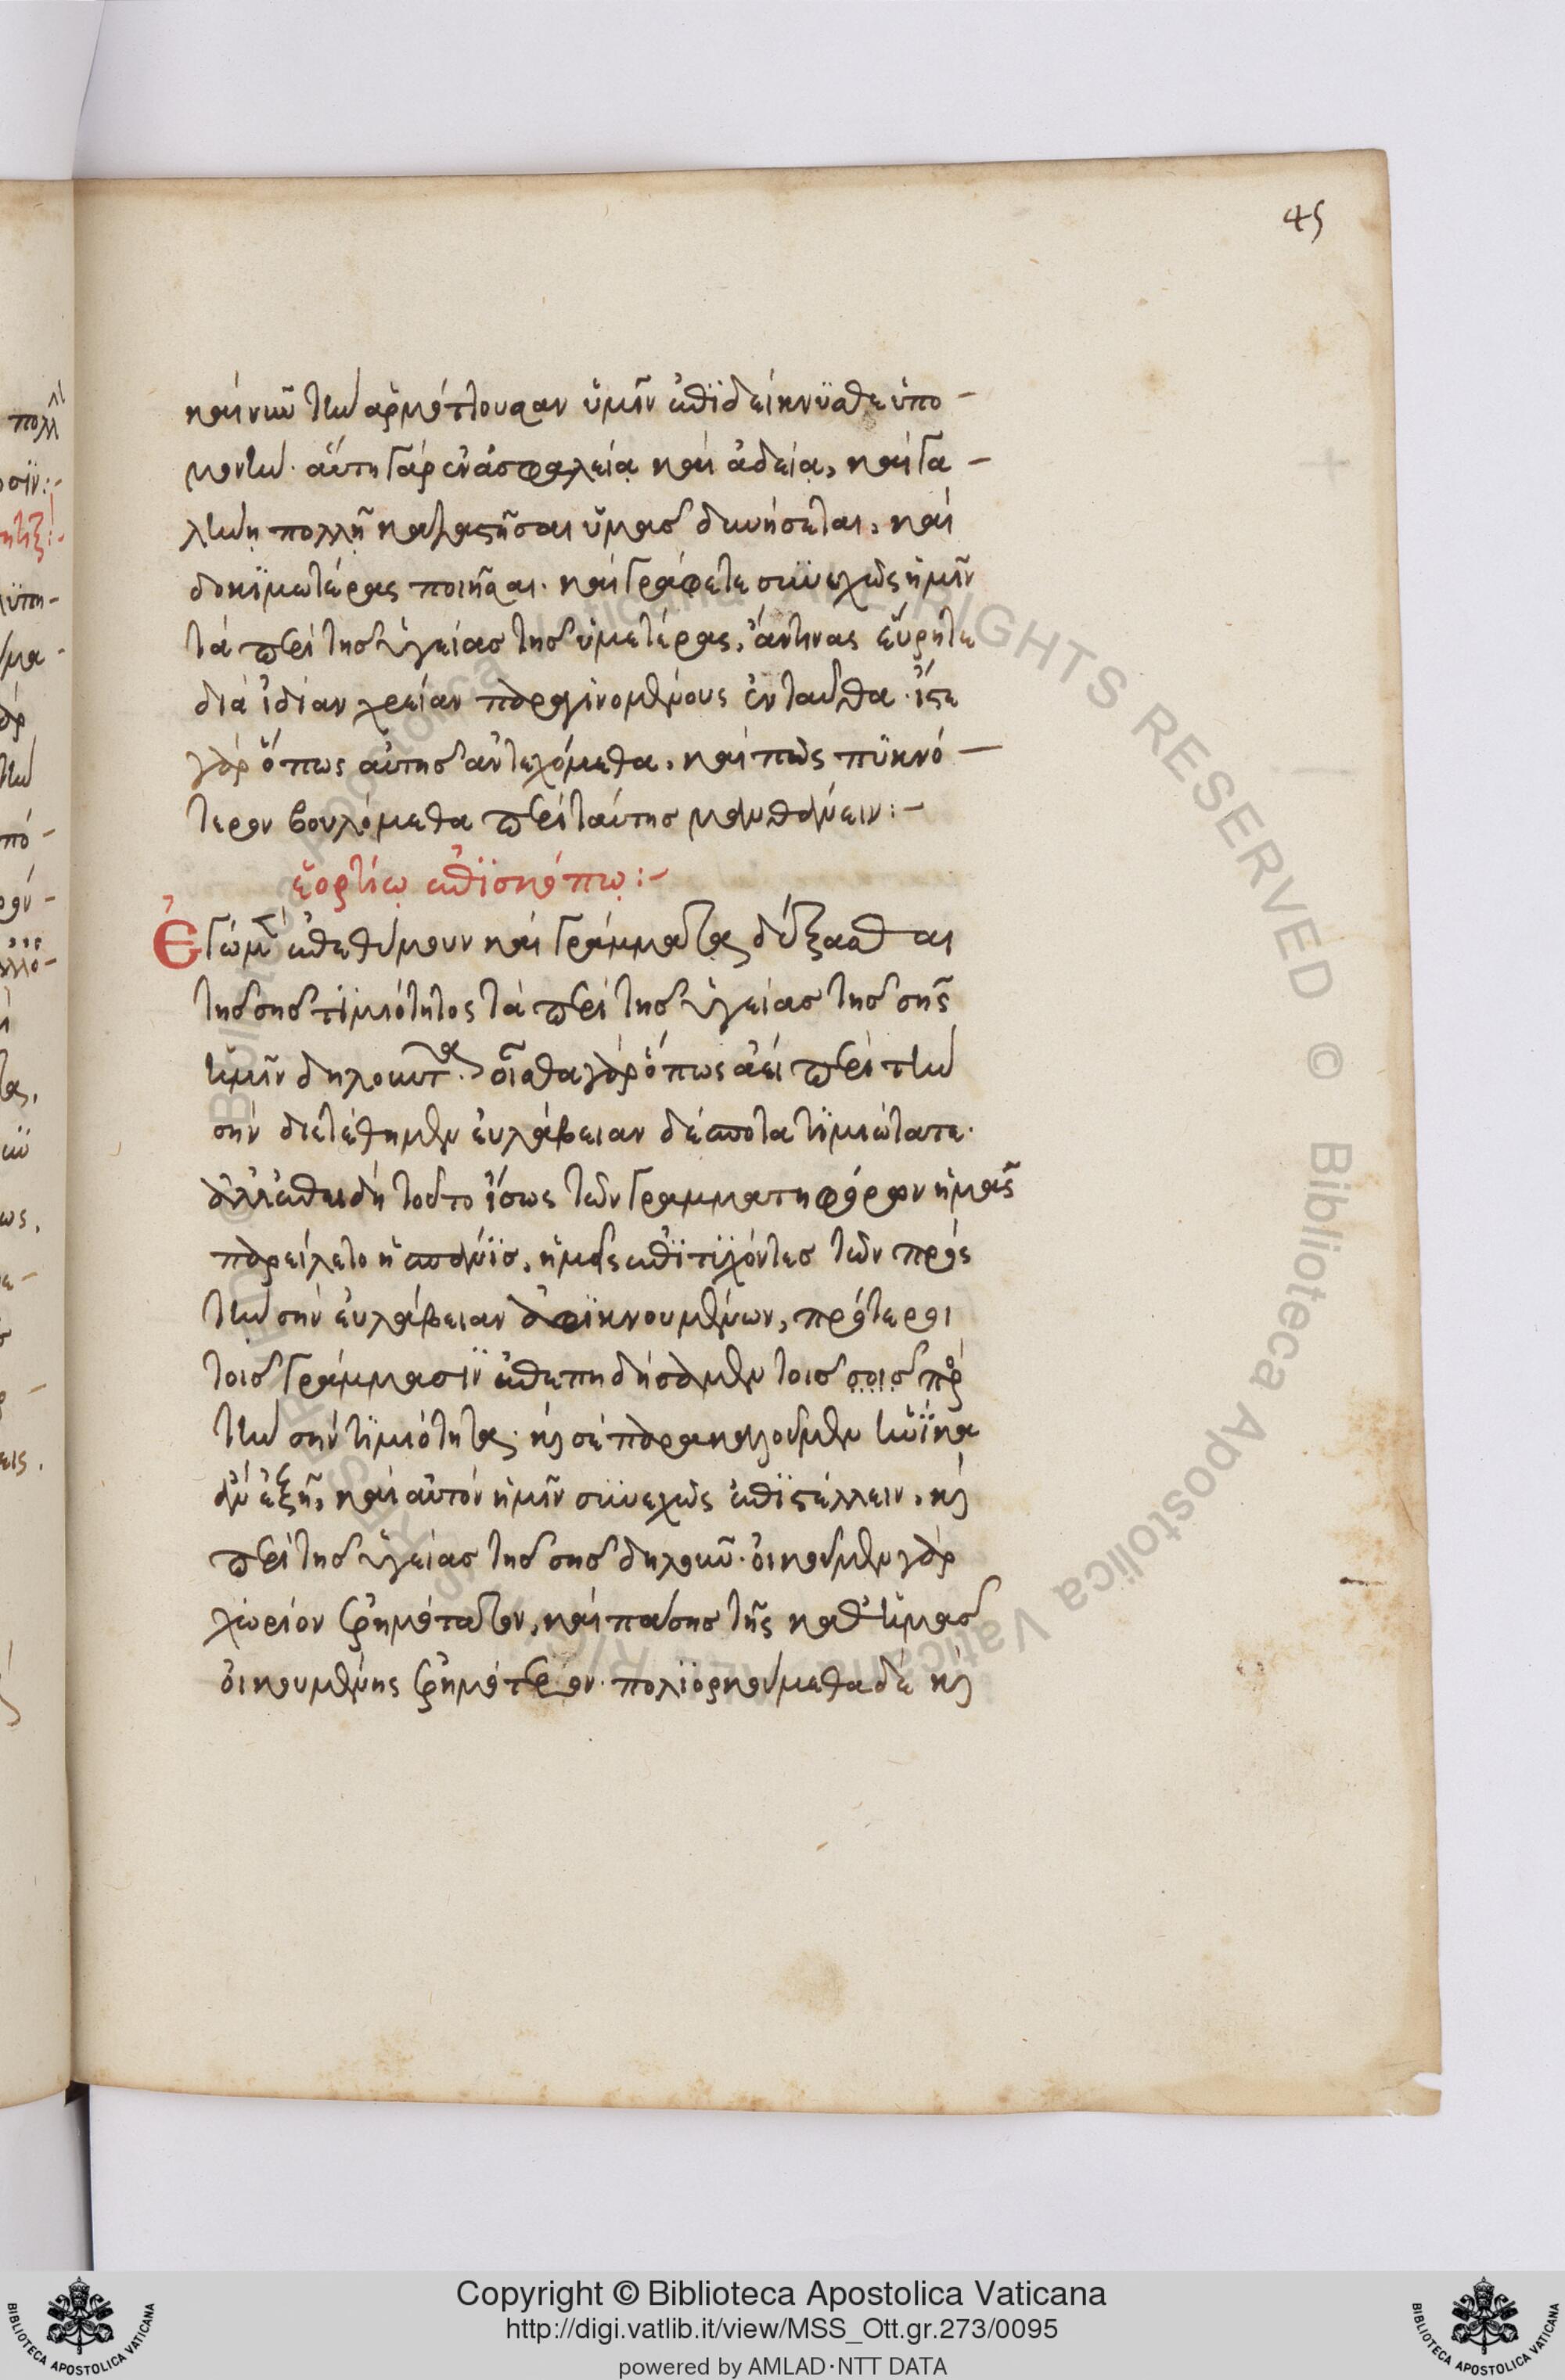 45
καὶ νῦν τὴν ἁρμόττουσαν ὑμῖν ἐπϊδείκνϋσθε ὑπο -
μονήν· αὕτη γὰρ ἐν ἀσφαλείᾳ καὶ ἀδείᾳ, καὶ γα -
λήνῃ πολλῇ καταστῆσαι ὑμᾶς δυνήσεται, καὶ
δοκϊμωτέρας ποιῆσαι. καὶ γράφετε συνεχῶς ἡμῖν
τὰ περὶ τῆς ὑγείας τῆς ὑμετέρας, ἄν τινας εὕρητε
διὰ ἰδίαν χρείαν παραγινομένους ἐνταῦθα. ἴστε
γὰρ ὅπως αὐτῆς ἀντεχόμεθα, καὶ πῶς πϋκνό -
τερον βουλόμεθα περὶ ταύτης μανθάνειν :-
ἑορτίῳ ἐπϊσκόπῳ :-
Ἐγὼ μὲν ἐπεθύμουν καὶ γράμματα δέξασθαι
τῆς σῆς τϊμιότητος τὰ περὶ τῆς ὑγείας τῆς σῆς
ἡμῖν δηλοῦντα. οἶσθα γὰρ ὅπως ἀεὶ περὶ τὴν
σὴν διετέθημεν εὐλάβειαν δέσποτα τϊμιώτατε.
ἀλλ' ἐπειδὴ τοῦτο ἴσως τῶν γραμματηφόρων ἡμᾶς
παρείλετο ἡ σπάνϊς, ἡμεῖς ἐπϊτϋχόντες τῶν πρὸς
τὴν σὴν εὐλάβειαν ἀφϊκνουμένων, πρότεροι
τοῖς γράμμασϊν ἐπεπηδήσαμεν τοῖς σοῖς πρὸς
τὴν σὴν τϊμιότητα. καὶ σὲ παρακαλοῦμεν ἡνίκα
ἂν ἐξῇ, καὶ αὐτὸν ἡμῖν συνεχῶς ἐπϊστέλλειν, καὶ
περὶ τῆς ὑγείας τῆς σῆς δηλοῦν. οἰκοῦμεν γὰρ
χωρίον ἐρημότατον, καὶ πάσης τῆς καθ' ἡμᾶς
οἰκουμένης ἐρημότερον. πολϊορκούμεθα δὲ καὶ
Copyright © Biblioteca Apostolica Vaticana
http://digi.vatlib.it/view/MSS_Ott.gr.273/0095
powered by AMLAD·NTT DATA